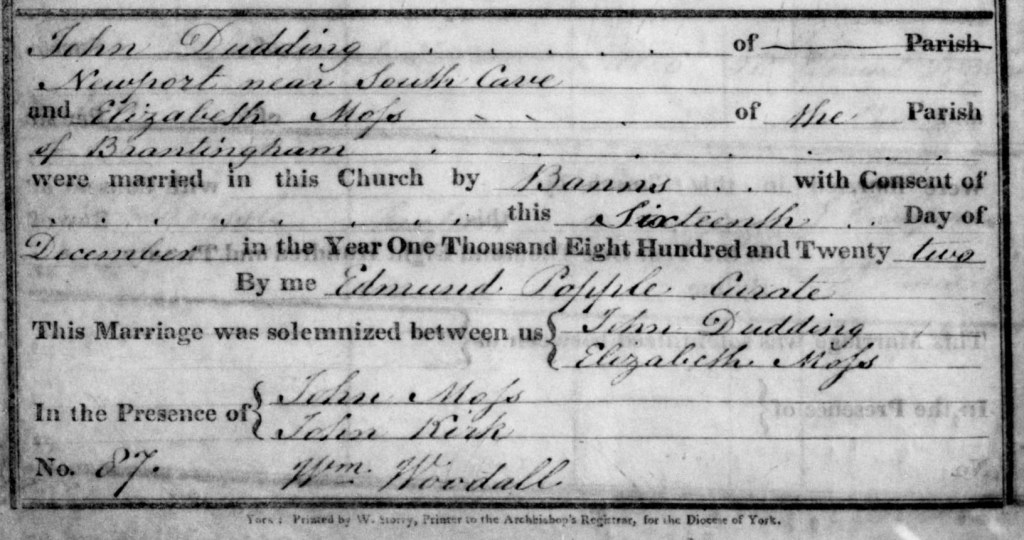 John Dudding . . . . . of Parish
Newport near South Cave
and Elizabeth Moſs . . . of the Parish
of Brantingham . . . . .
were married in this Church by Banns . . with Consent of
. . . . . . . this Sixteenth . Day of
December in the Year One Thousand Eight Hundred and Twenty two
By me Edmund Popple Curate
This Marriage was solemnized between us { John Dudding
Elizabeth Moſs
In the Presence of { John Moſs
John Kirk
No. 87. Wm. Woodall
York: Printed by W. Storry, Printer to the Archbishop's Registrar, for the Diocese of York.